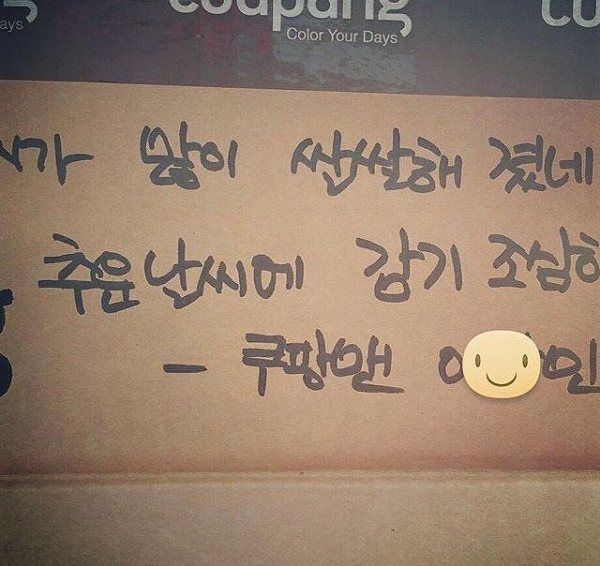 ays coupang
Color Your Days
많이 싼쌀해 졌네
추운 날씨에 감기 조심하
- 쿠팡맨